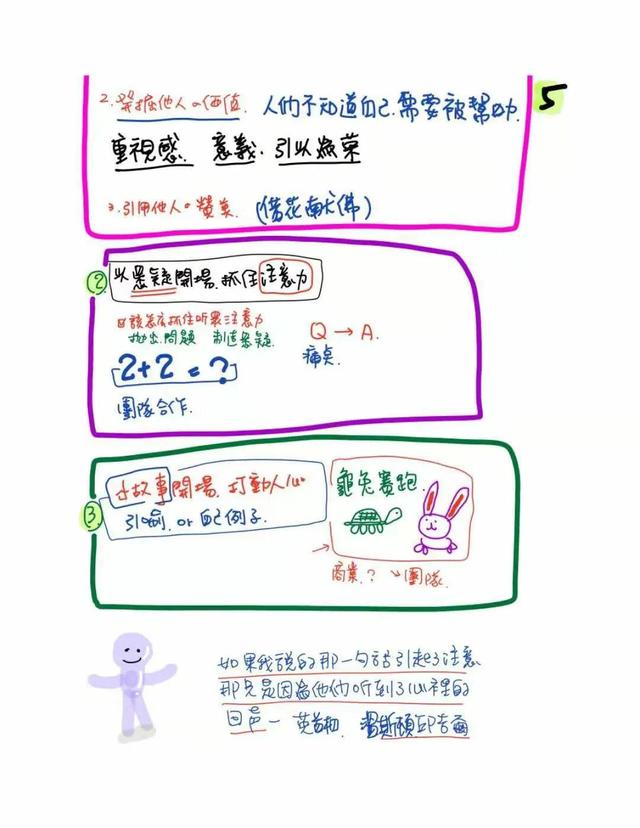 5
2.發掘他人の価值 人們不知道自己需要被幫助.
重視感. 意義. 引以為榮
3.引用他人の贊美. (借花献佛)
② 以悬疑開場.抓住注意力
該怎麼抓住听眾注意力
抛出問題 制造悬疑
Q → A.
痛點.
2+2 = ?
團隊合作.
③ 小故事開場.打動人心
引喻. or 自己例子.
龜兔賽跑.
商業.? ↘團隊.
如果我說的那一句話引起了注意
那只是因為他們听到了心裡的
回音一 英首相. 溫斯頓邱吉爾